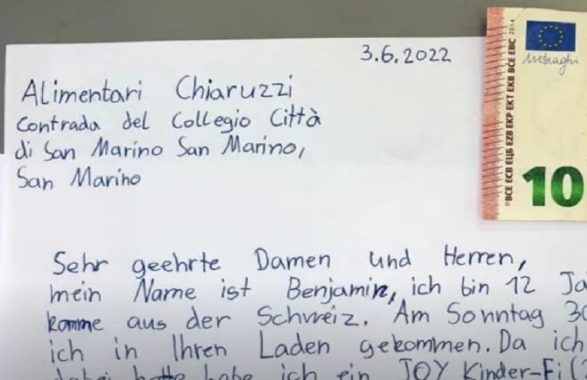 3.6.2022
Alimentari Chiaruzzi
Contrada del Collegio Città
di San Marino San Marino,
San Marino
BCE ECB ЕЦБ EZB EKP EKT EKB BĊE EBC
2014
10
Sehr geehrte Damen und Herren,
mein Name ist Benjamin, ich bin 12 Ja
komme aus der Schweiz. Am Sonntag 30
ich in Ihren Laden gekommen. Da ich
dabei hatte habe ich ein JOY Kinder-Ei